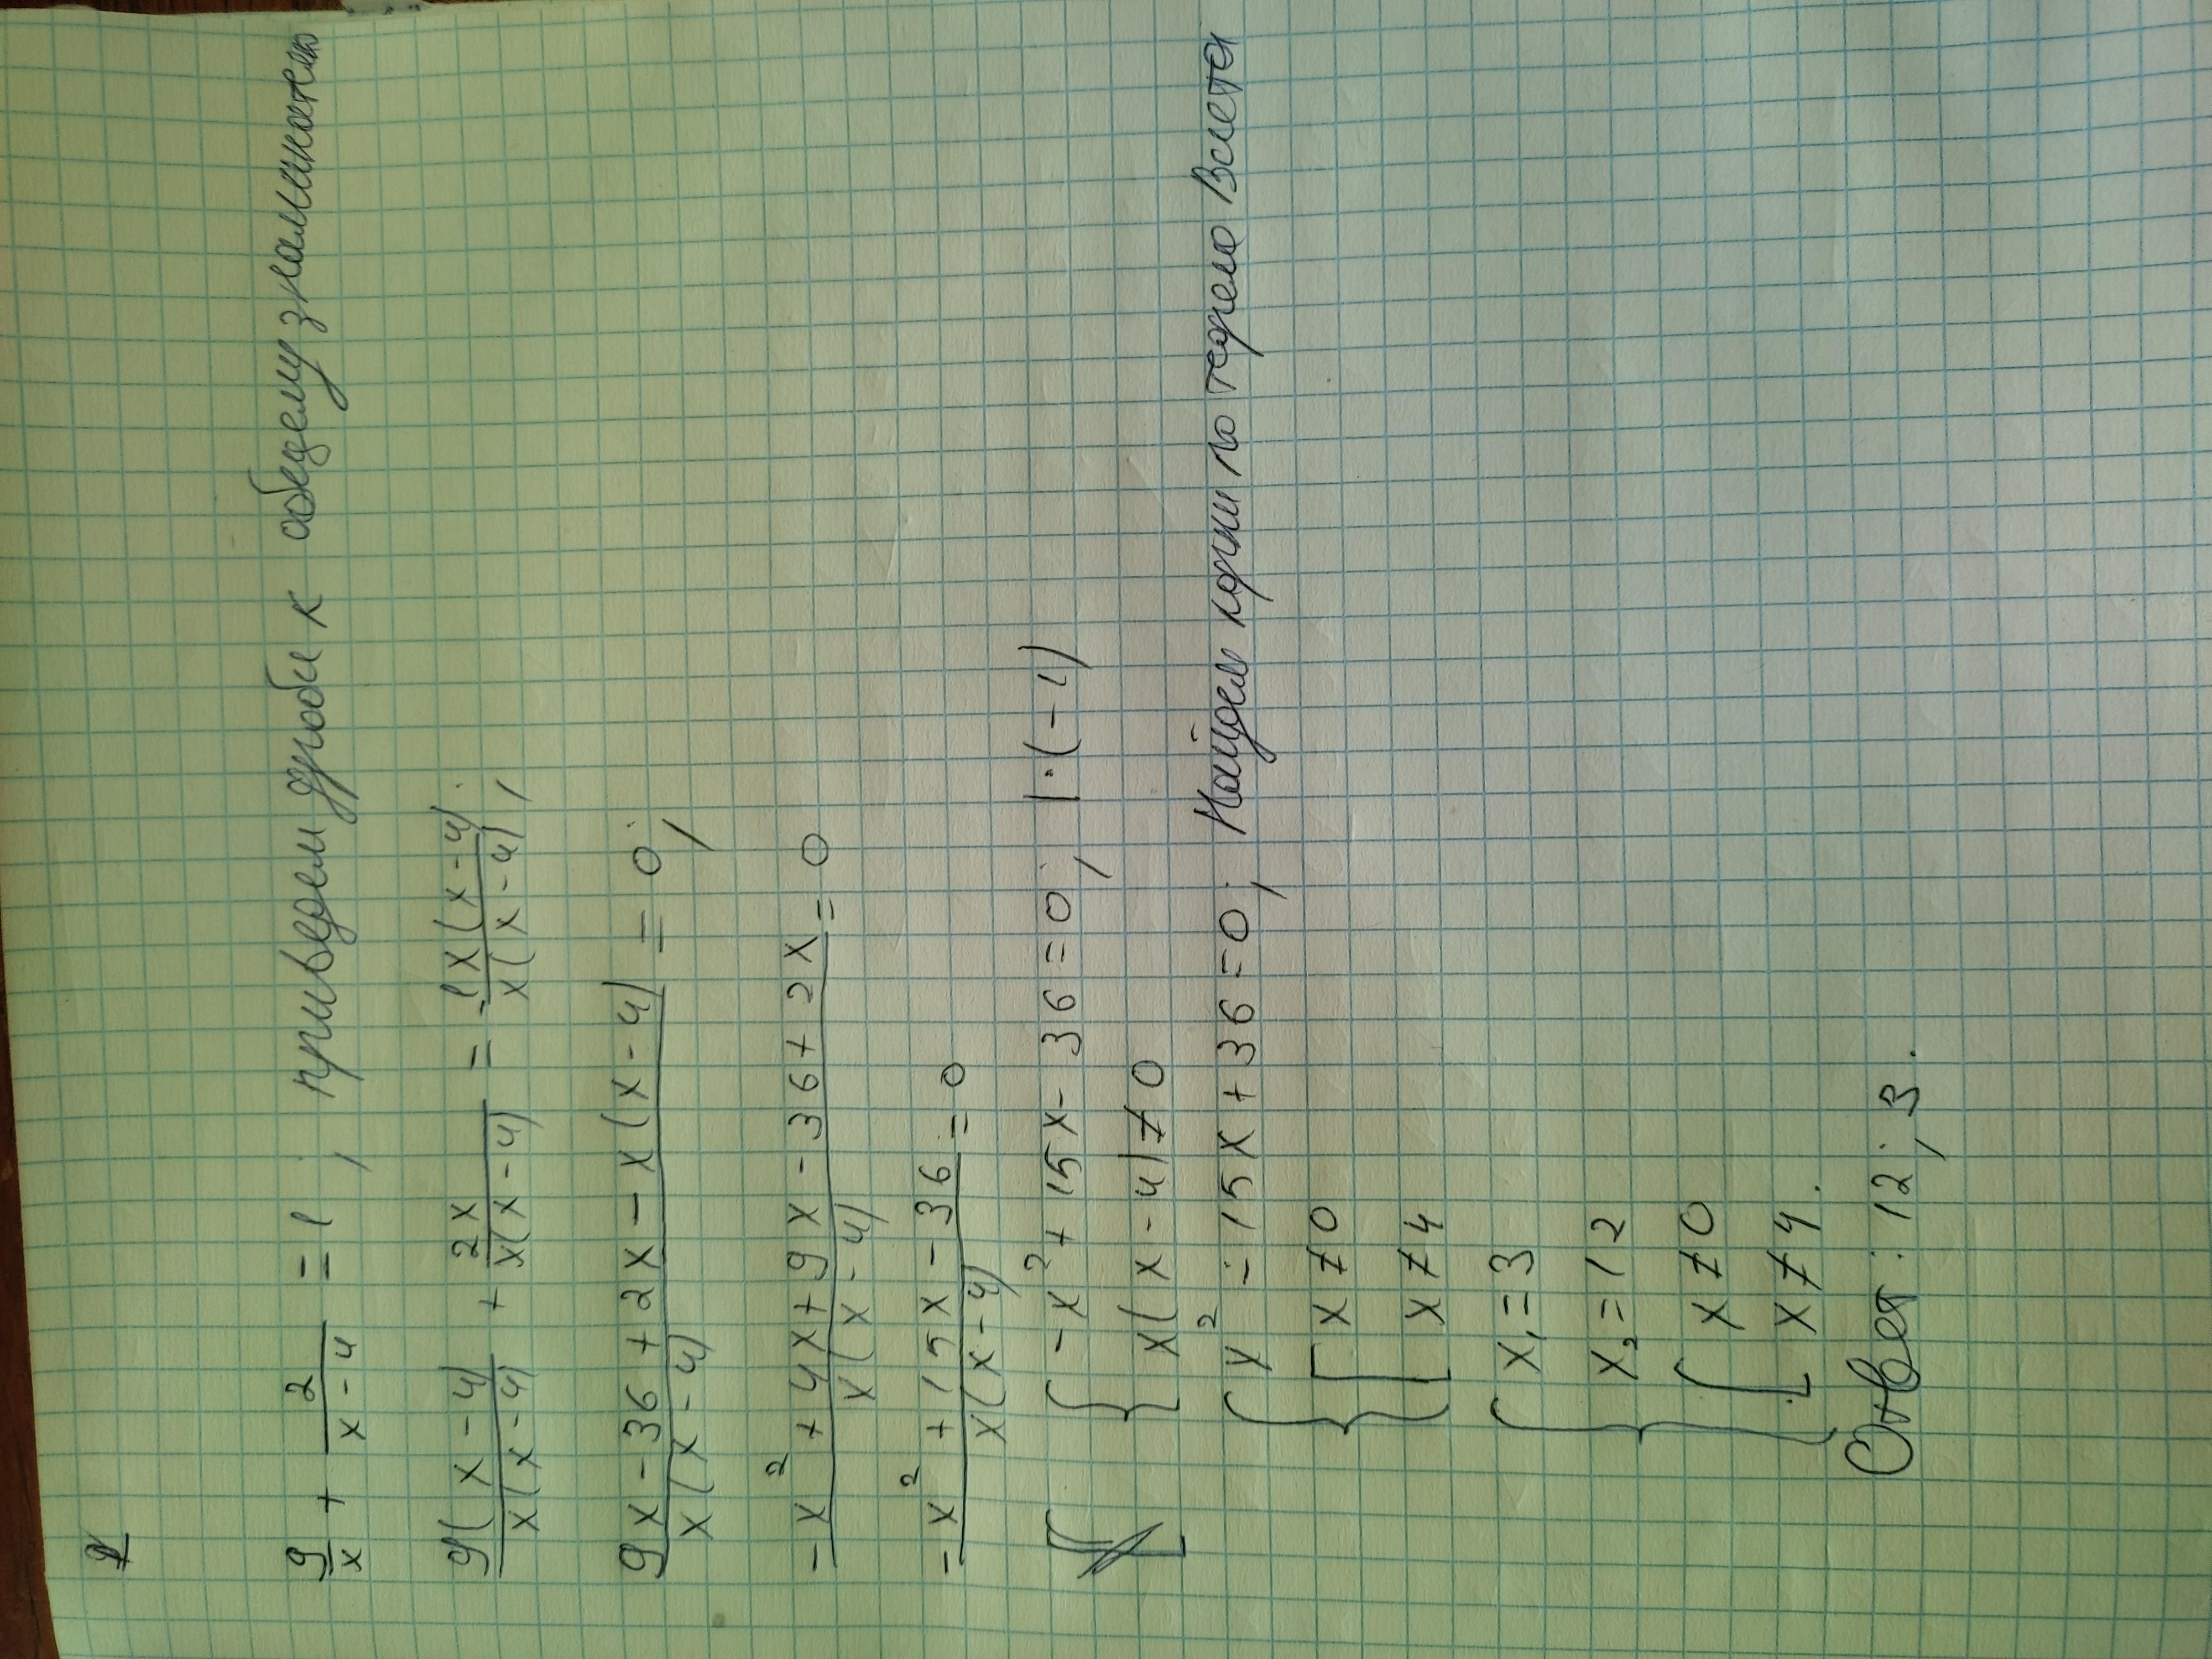 1
9/x + 2/(x-4) = 1; приведем дроби к общему знаминателю
9(x-4)/x(x-4) + 2x/x(x-4) = 1x(x-4)/x(x-4);
(9x-36+2x-x(x-4))/x(x-4) = 0;
(-x²+4x+9x-36+2x)/x(x-4) = 0
(-x²+15x-36)/x(x-4) = 0
{ -x²+15x-36=0; |·(-1)
x(x-4)≠0
{ x²-15x+36=0; Найдем корни по теореме Виета
[ x≠0
x≠4
{ x₁=3
x₂=12
[ x≠0
x≠4.
Ответ: 12; 3.